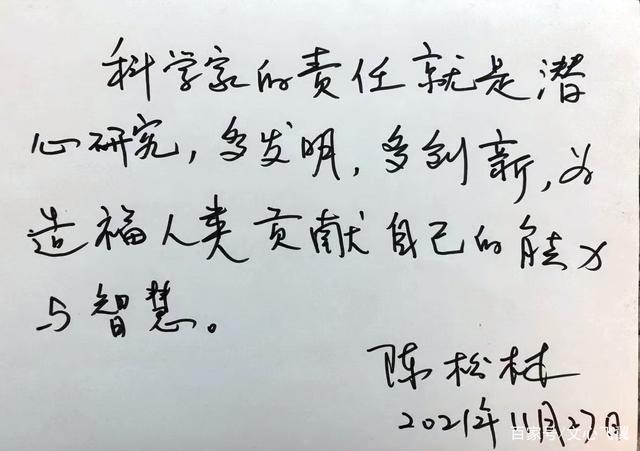 科学家的责任就是潜
心研究，多发明，多创新，为
造福人类贡献自己的能力
与智慧。
陈松林
2021年11月27日
百家号/文心飞翼